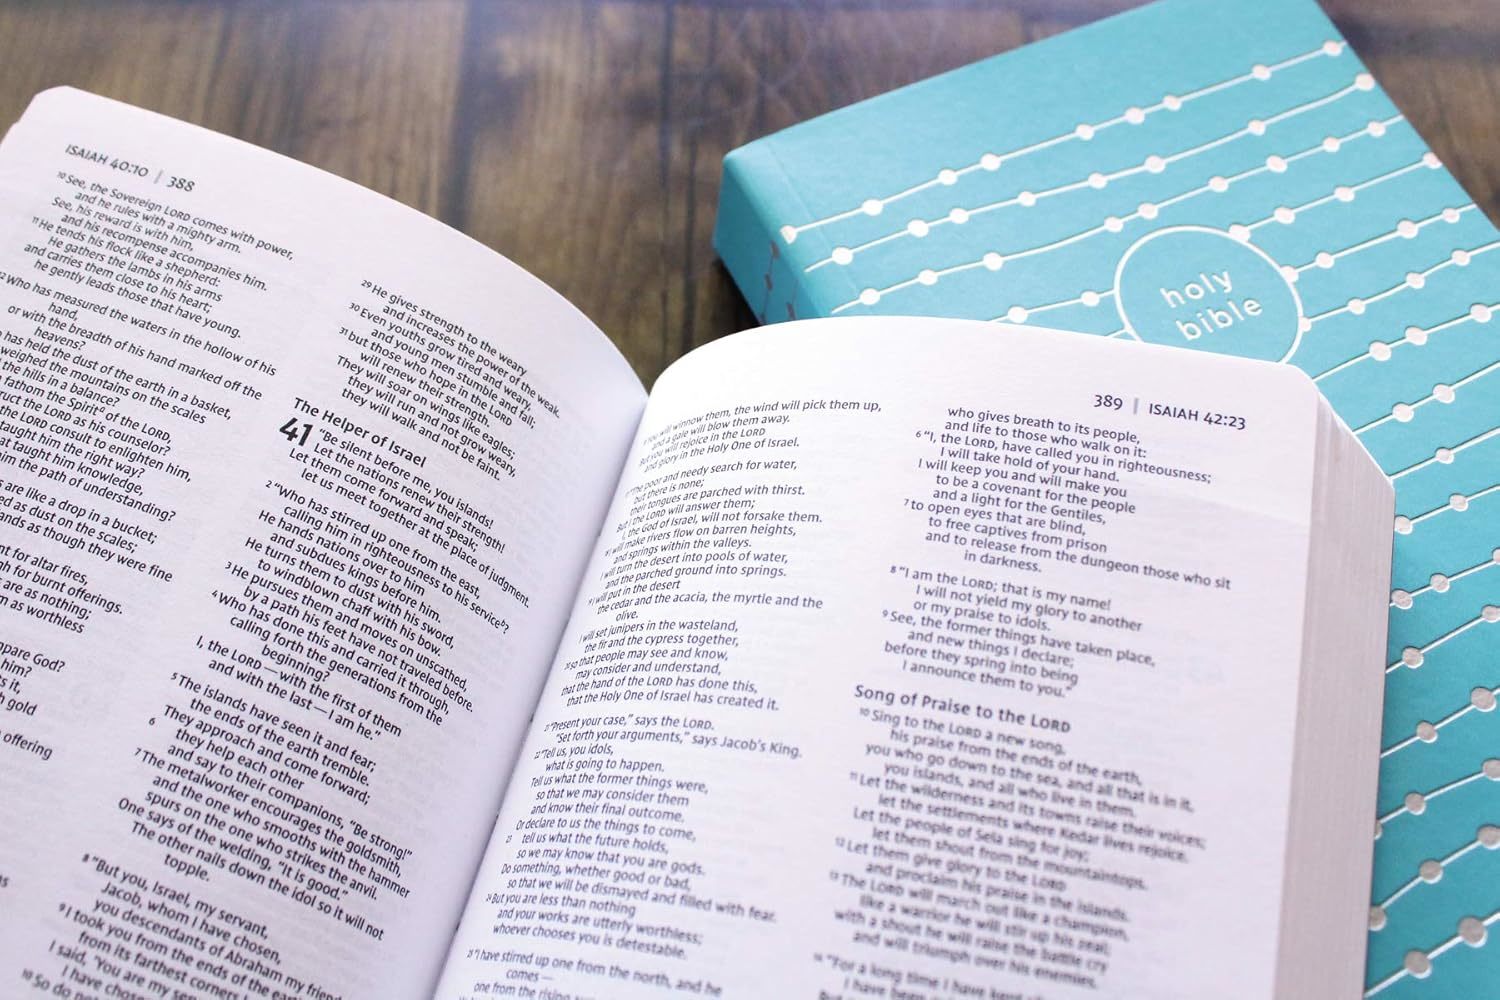 ISAIAH 40:10 | 388
10 See, the Sovereign LORD comes with power,
and he rules with a mighty arm.
See, his reward is with him,
and his recompense accompanies him.
11 He tends his flock like a shepherd:
He gathers the lambs in his arms
and carries them close to his heart;
he gently leads those that have young.
Who has measured the waters in the hollow of his
hand,
or with the breadth of his hand marked off the
heavens?
has held the dust of the earth in a basket,
weighed the mountains on the scales
the hills in a balance?
fathom the Spirit of the LORD,
the LORD as his counselor?
the LORD consult to enlighten him,
taught him the right way?
taught him knowledge,
him the path of understanding?
are like a drop in a bucket;
as dust on the scales;
as though they were fine
for altar fires,
for burnt offerings.
are as nothing;
as worthless
God?
him?
it,
gold
offering
29 He gives strength to the weary
and increases the power of the weak.
30 Even youths grow tired and weary,
and young men stumble and fall;
31 but those who hope in the LORD
will renew their strength.
They will soar on wings like eagles;
they will run and not grow weary,
they will walk and not be faint.
The Helper of Israel
41 "Be silent before me, you islands!
Let the nations renew their strength!
Let them come forward and speak;
let us meet together at the place of judgment.
2 "Who has stirred up one from the east,
calling him in righteousness to his service?
He hands nations over to him
and subdues kings before him.
He turns them to dust with his sword,
to windblown chaff with his bow.
3 He pursues them and moves on unscathed,
by a path his feet have not traveled before.
4 Who has done this and carried it through,
calling forth the generations from the
beginning?
I, the LORD—with the first of them
and with the last—I am he."
5 The islands have seen it and fear;
the ends of the earth tremble.
They approach and come forward;
6 they help each other
and say to their companions, "Be strong!"
7 The metalworker encourages the goldsmith,
and the one who smooths with the hammer
spurs on the one who strikes the anvil.
One says of the welding, "It is good."
The other nails down the idol so it will not
topple.
8 "But you, Israel, my servant,
Jacob, whom I have chosen,
you descendants of Abraham my friend
9 I took you from the ends of the earth
from its farthest corners I
I said, 'You are my
I have chosen
10 So do not
389 | ISAIAH 42:23
will winnow them, the wind will pick them up,
and a gale will blow them away.
But you will rejoice in the LORD
and glory in the Holy One of Israel.
poor and needy search for water,
but there is none;
their tongues are parched with thirst.
But I the LORD will answer them;
I, the God of Israel, will not forsake them.
I will make rivers flow on barren heights,
and springs within the valleys.
I will turn the desert into pools of water,
and the parched ground into springs.
I will put in the desert
the cedar and the acacia, the myrtle and the
olive.
I will set junipers in the wasteland,
the fir and the cypress together,
20 so that people may see and know,
may consider and understand,
that the hand of the LORD has done this,
that the Holy One of Israel has created it.
21 "Present your case," says the LORD.
"Set forth your arguments," says Jacob's King.
22 "Tell us, you idols,
what is going to happen.
Tell us what the former things were,
so that we may consider them
and know their final outcome.
Or declare to us the things to come,
23 tell us what the future holds,
so we may know that you are gods.
Do something, whether good or bad,
so that we will be dismayed and filled with fear.
24 But you are less than nothing
and your works are utterly worthless;
whoever chooses you is detestable.
25 "I have stirred up one from the north, and he
comes—
one from the rising
who gives breath to its people,
and life to those who walk on it:
6 "I, the LORD, have called you in righteousness;
I will take hold of your hand.
I will keep you and will make you
to be a covenant for the people
and a light for the Gentiles,
7 to open eyes that are blind,
to free captives from prison
and to release from the dungeon those who sit
in darkness.
8 "I am the LORD; that is my name!
I will not yield my glory to another
or my praise to idols.
9 See, the former things have taken place,
and new things I declare;
before they spring into being
I announce them to you."
Song of Praise to the LORD
10 Sing to the LORD a new song,
his praise from the ends of the earth,
you who go down to the sea, and all that is in it,
you islands, and all who live in them.
11 Let the wilderness and its towns raise their voices;
let the settlements where Kedar lives rejoice.
Let the people of Sela sing for joy;
let them shout from the mountaintops.
12 Let them give glory to the LORD
and proclaim his praise in the islands.
13 The LORD will march out like a champion,
like a warrior he will stir up his zeal;
with a shout he will raise the battle cry
and will triumph over his enemies.
14 "For a long time I have kept
holy
bible